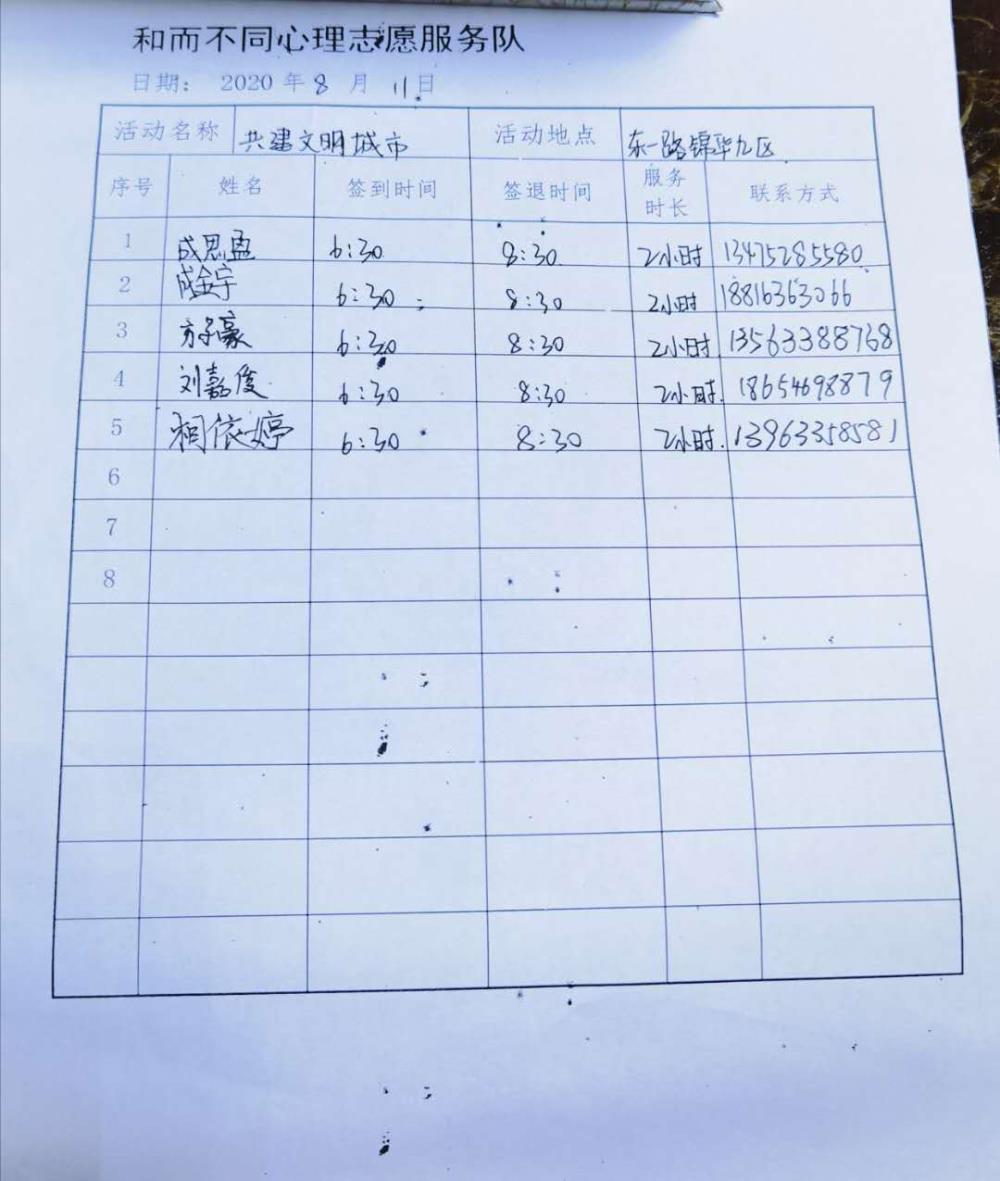 和而不同心理志愿服务队
日期： 2020 年 8 月 11 日
活动名称 共建文明城市 活动地点 东一路锦华九区
序号 姓名 签到时间 签退时间 服务时长 联系方式
1 成思盈 6:30 8:30 2小时 13475285580
2 成金宇 6:30 8:30 2小时 18816363066
3 方子豪 6:30 8:30 2小时 13563388768
4 刘嘉俊 6:30 8:30 2小时. 18654698879
5 相依婷 6:30 8:30 2小时. 13963358581
6
7
8